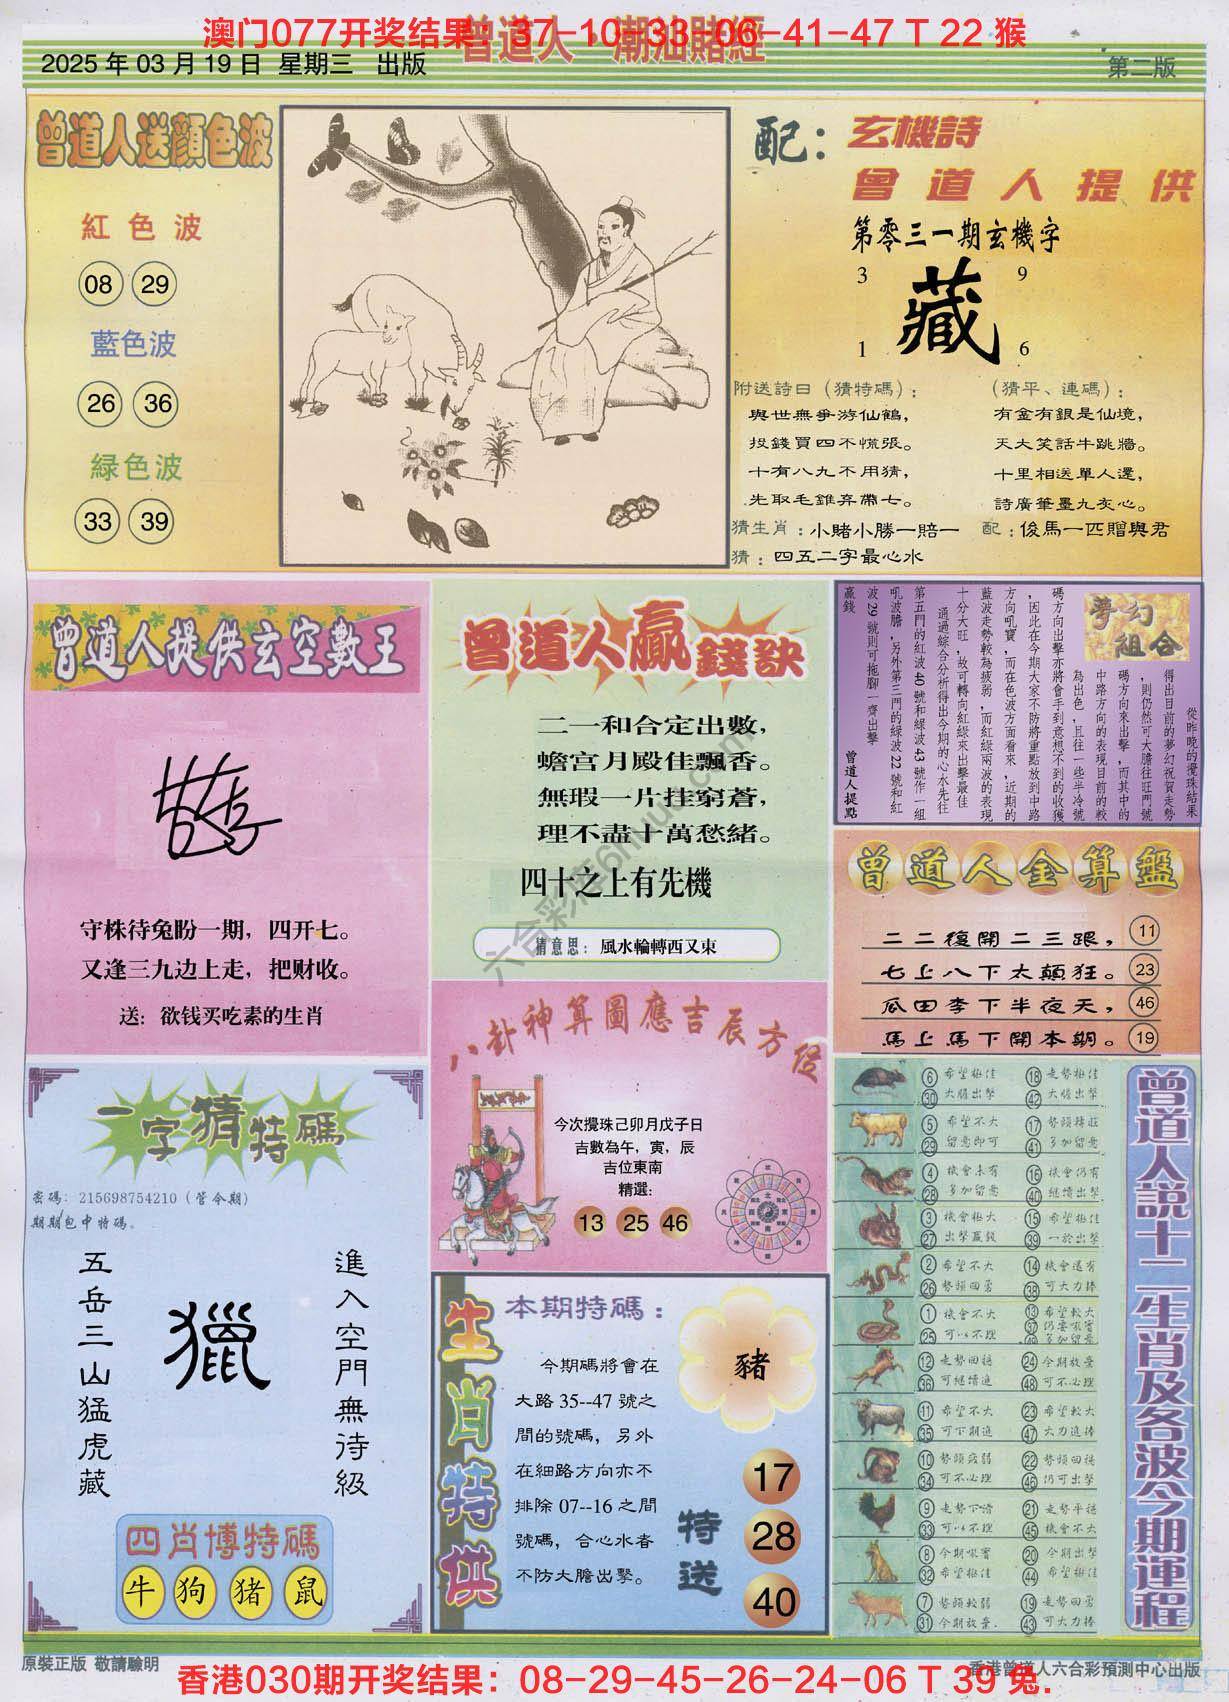 澳门077开奖结果：37-10-33-06-41-47 T 22 猴
曾道人 潮汕賭經
2025 年 03 月 19 日 星期三 出版
第二版
曾道人送顔色波
紅色波
08 29
藍色波
26 36
緑色波
33 39
配：玄機詩
曾道人提供
第零三一期玄機字
3 9
藏
1 6
附送詩曰（猜特碼）：
與世無爭游仙鶴，
投錢買四不慌張。
十有八九不用猜，
先取毛錐弃帶七。
（猜平、連碼）：
有金有銀是仙境，
天大笑話牛跳牆。
十里相送單人還，
詩廣筆墨九灰心。
猜生肖：小賭小勝一賠一
配：俊馬一匹贈與君
猜：四五二字最心水
曾道人提供玄空數王
守株待兔盼一期，四开七。
又逢三九边上走，把财收。
送：欲钱买吃素的生肖
曾道人贏錢訣
二一和合定出數，
蟾宫月殿佳飄香。
無瑕一片挂窮蒼，
理不盡十萬愁緒。
四十之上有先機
猜意思：風水輪轉西又東
夢幻組合
從昨晚的攪珠結果
得出目前的夢幻祝賀走勢
，則仍然可大膽往旺門號
碼方向來出擊，而其中的
中路方向的表現目前的較
為出色，且往一些半冷號
碼方向出擊亦將會手到意想不到的收獲
，因此在今期大家不防將重點放到中路
方向吼寶，而在色波方面看來，近期的
藍波走勢較為疲弱，而紅緑兩波的表現
十分大旺，故可轉向紅緑來出擊最佳
通過綜合分析得出今期的心水先往
第五門的紅波 40 號和緑波 43 號作一組
吼波膽，另外第三門的緑波 22 號和紅
波 29 號則可拖腳一齊出擊
贏錢
曾道人提點
曾道人金算盤
二二復開二三跟， 11
七上八下太顛狂。 23
瓜田李下半夜天， 46
馬上馬下開本期。 19
八卦神算圖應吉辰方位
今次攪珠己卯月戊子日
吉數為午，寅，辰
吉位東南
精選：
13 25 46
一字猜特碼
密碼：215698754210（管令期）
期期包中特碼。
進入空門無待級
獵
五岳三山猛虎藏
四肖博特碼
牛 狗 猪 鼠
生肖特供
本期特碼：
今期碼將會在
大路 35--47 號之
間的號碼，另外
在細路方向亦不
排除 07--16 之間
號碼，合心水者
不防大膽出擊。
豬
特送
17
28
40
曾道人說十二生肖及各波今期運程
6 希望極佳 18 走勢極佳
30 大膽出擊 42 大膽出擊
5 希望不大 17 勢頭轉旺
29 留意即可 41 多加留意
4 機會未有 16 機會仍有
28 多加留意 40 繼續出擊
3 機會極大 15 希望極佳
27 出擊贏錢 39 一於出擊
2 希望不大 14 機會還有
26 勢頭回勇 38 可大力捧
1 機會不大 13 希望較大
25 可以不理 37 仍要吼實
49 多加留意
12 走勢回穩 24 今期放棄
36 可繼續追 48 可不必理
11 希望不大 23 希望較大
35 可下期追 47 大力追捧
10 勢頭疲弱 22 勢頭回穩
34 可不必理 46 仍可出擊
9 走勢下滑 21 走勢平穩
33 可以不理 45 機會不大
8 今期吼實 20 今期出擊
32 希望極佳 44 希望極佳
7 勢頭較弱 19 走勢回勇
31 今期放棄. 43 可大力捧
原裝正版 敬請驗明
香港曾道人六合彩預測中心出版
香港030期开奖结果：08-29-45-26-24-06 T 39 兔.